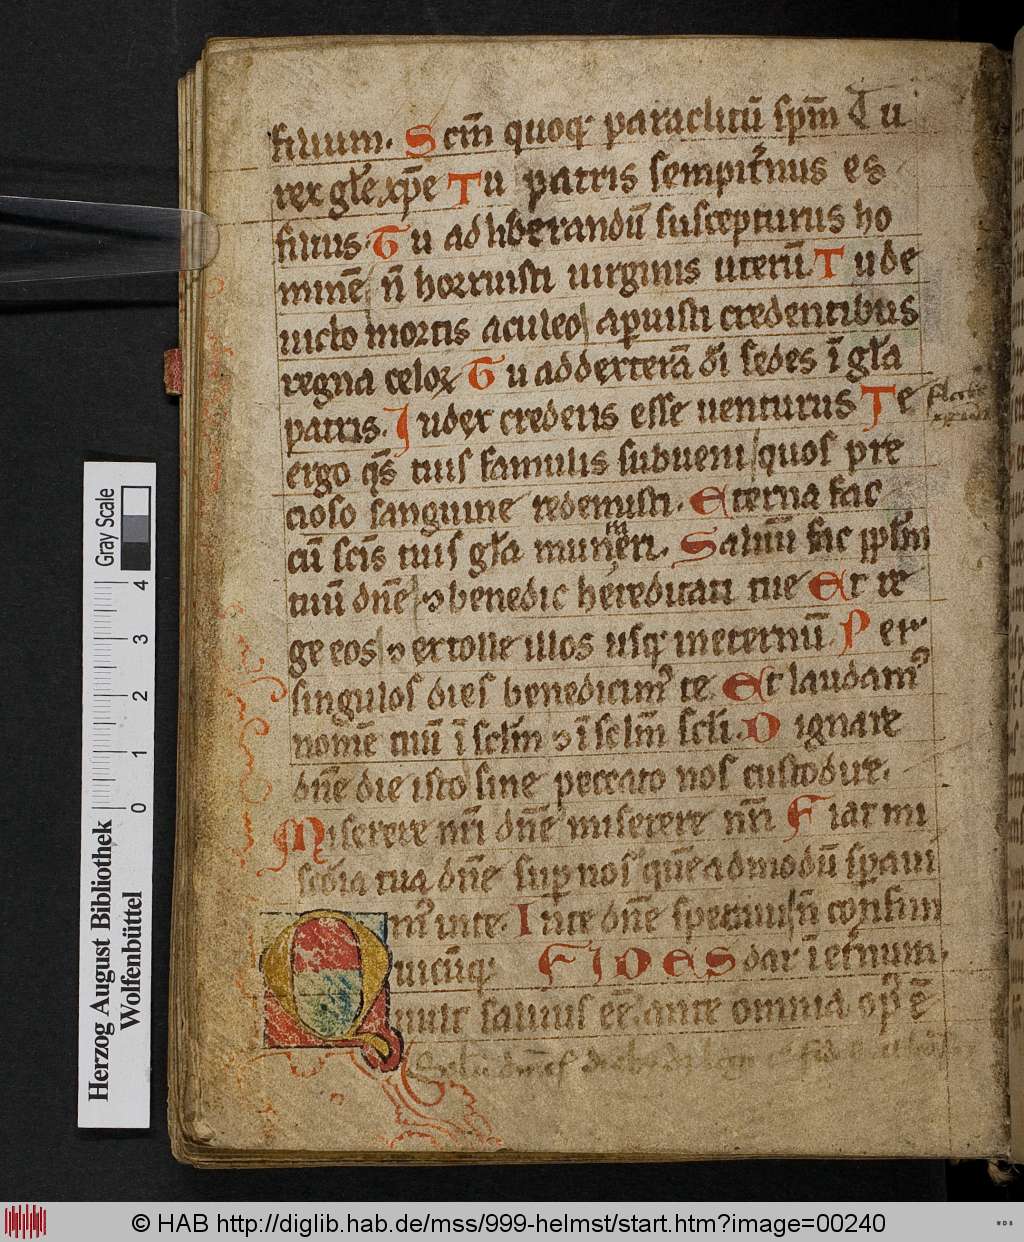 filium. Scm̄ quoq paraclitū spm̄ Tu
rex gl̄e xp̄e Tu patris sempit̄nus es
filius. Tu ad liberandū suscepturus ho
minē n̄ horruisti uirginis uterū. Tu de
uicto mortis aculeo aperuisti credentibus
regna celoꝝ Tu ad dexterā dī sedes ī gl̄a
patris. Iudex crederis esse uenturus Te
ergo qs̄ tuis famulis subueni quos pre
cioso sanguine redemisti. Eterna fac
cū scīs tuis gl̄a muneri. Saluū fac ppl̄m
tuū dn̄e ⁊ benedic hereditati tue Et re
ge eos ⁊ extolle illos usq in eternū. Per
singulos dies benedicimꝰ te Et laudamꝰ
nomē tuū ī scl̄m ⁊ ī scl̄m scl̄i. Dignare
dn̄e die isto sine peccato nos custodire.
Miserere nr̄i dn̄e miserere nr̄i Fiat mi
scd̄ia tua dn̄e suꝑ nos quēadmodū sꝑaui
mꝰ in te. In te dn̄e speraui n̄ confun
dar ī et̄num. FIDES
Quicūq
uult saluus eē ante omnia opꝰ ē
Herzog August Bibliothek
Wolfenbüttel
Gray Scale
0 1 2 3 4
© HAB http://diglib.hab.de/mss/999-helmst/start.htm?image=00240